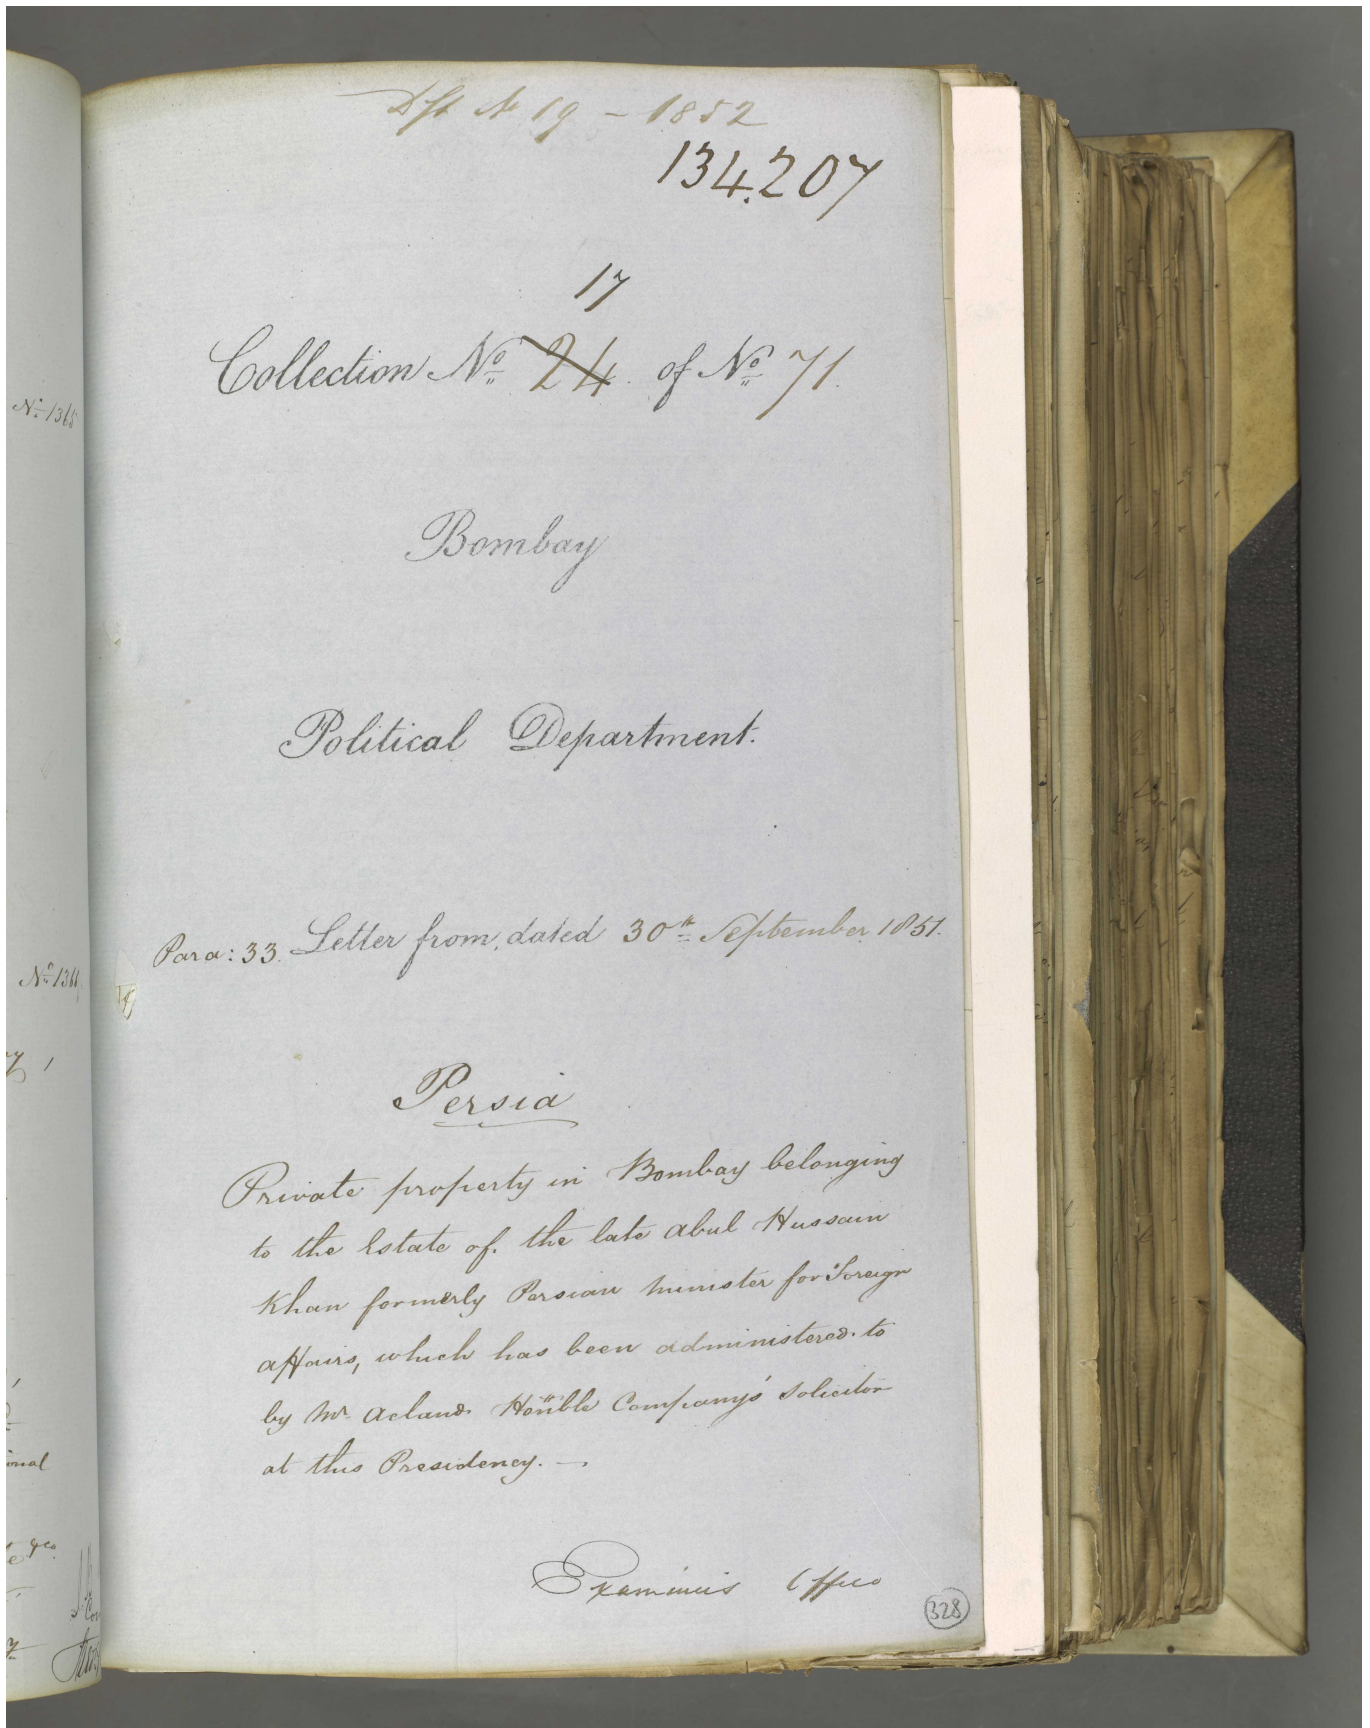 Dft No 19 - 1852
134.207
17
Collection No 24 of No 71.
Bombay
Political Department.
Para: 33. Letter from, dated 30th September 1851.
Persia
Private property in Bombay belonging
to the Estate of the late Abul Hussain
Khan formerly Persian Minister for Foreign
Affairs, which has been administered to
by Mr Acland Honble Company's Solicitor
at this Presidency. —
Examiners Office
328
No 1365
No 1366